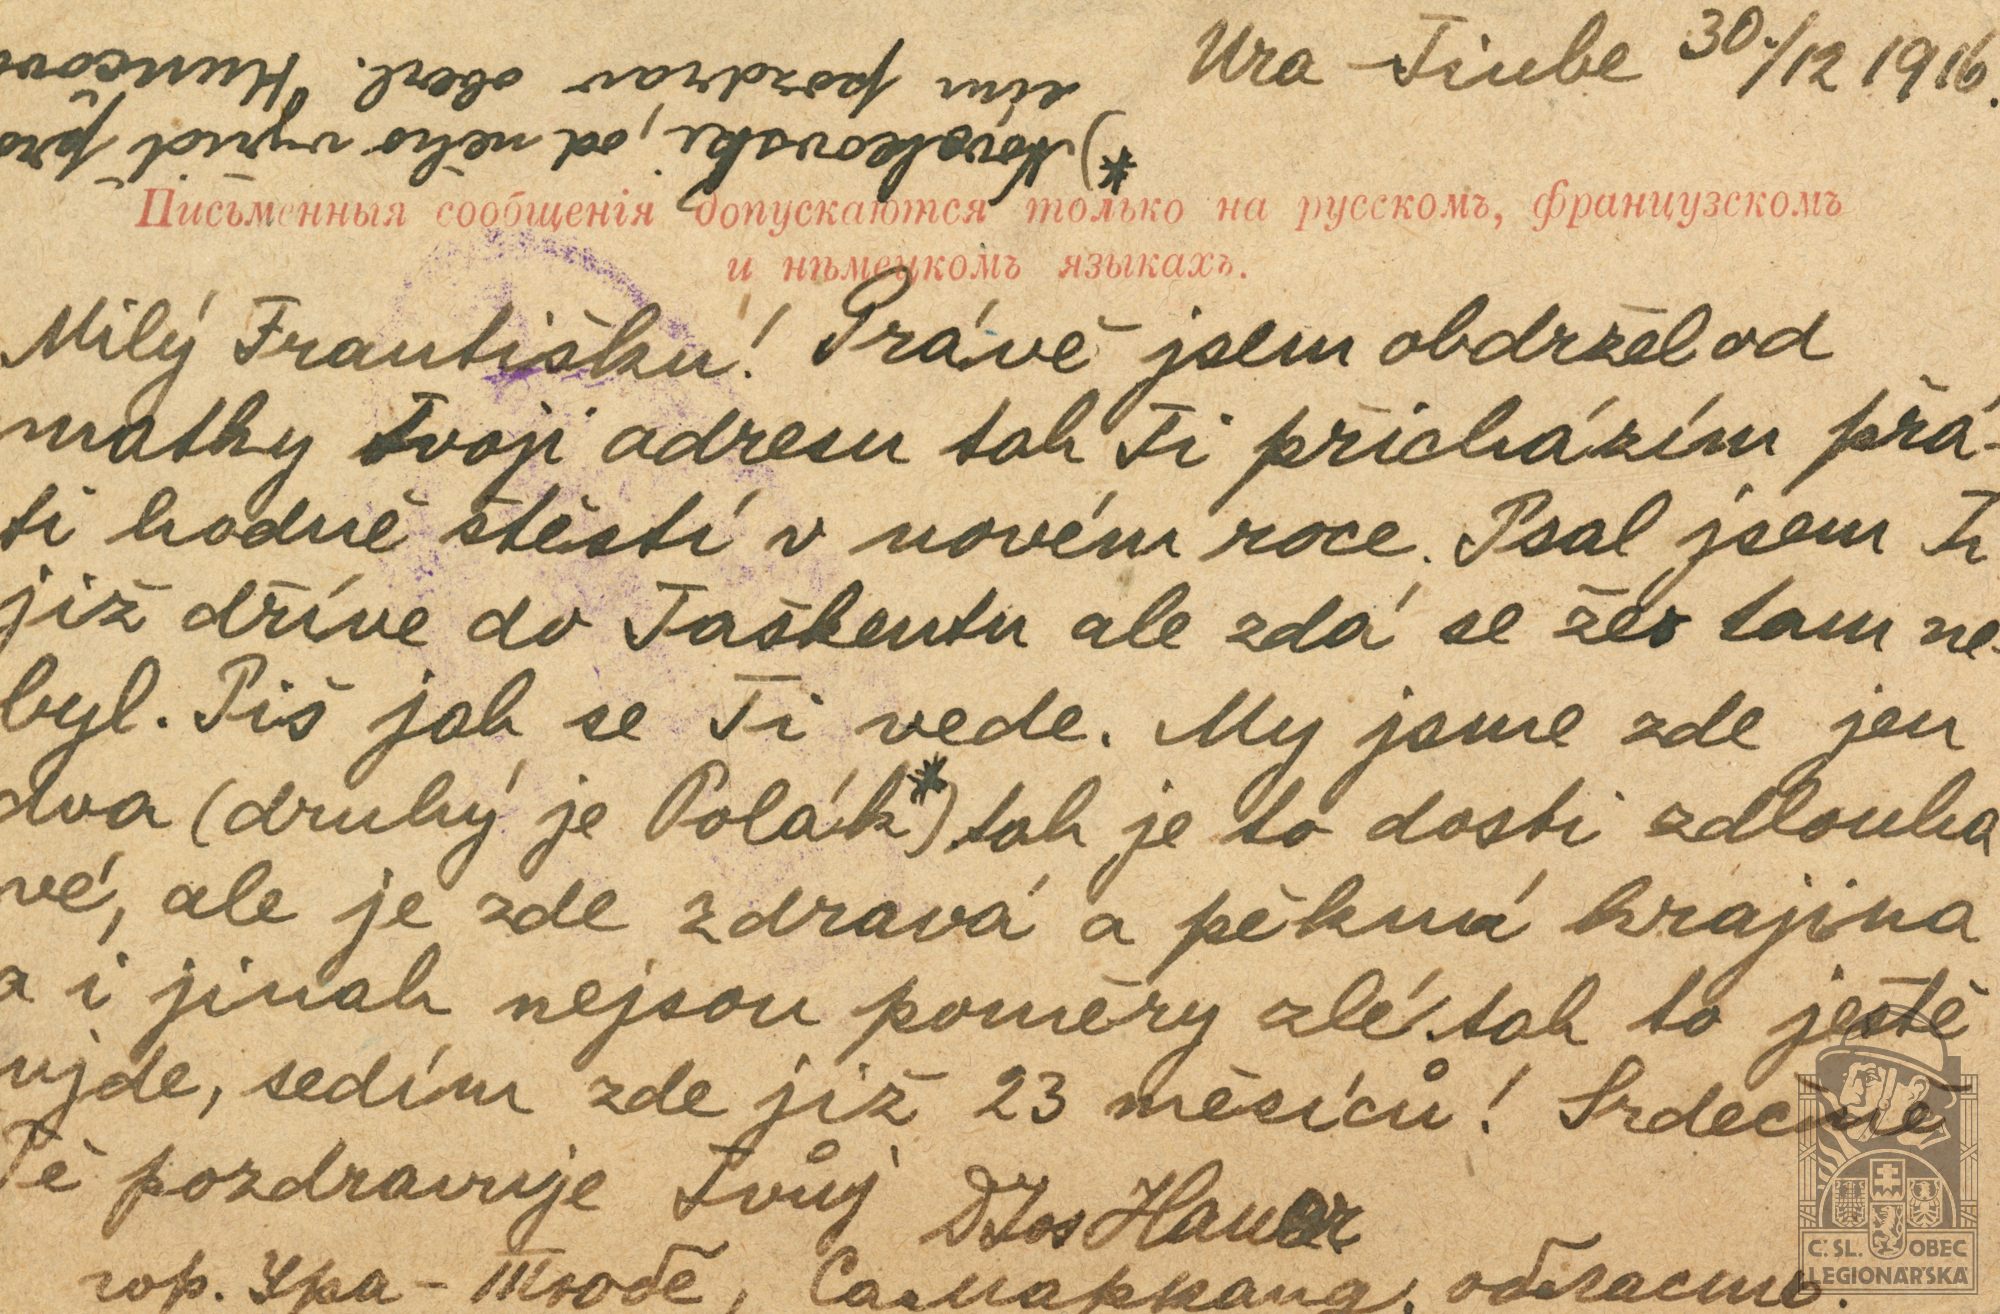 Ura-Tiube 30./12 1916.
*) Novakovski, od něho vyřiď pro-
sím pozdrav oberl. Kuncovi
Письменныя сообщенія допускаются только на русскомъ, французскомъ
и нѣмецкомъ языкахъ.
Milý Františku! Právě jsem obdržel od
matky tvoji adresu tak Ti přicházím přá-
ti hodně štěstí v novém roce. Psal jsem Ti
již dříve do Taškentu ale zdá se žes tam ne-
byl. Piš jak se Ti vede. My jsme zde jen
dva (druhý je Polák*) tak je to dosti zdlouha
vé, ale je zde zdravá a pěkná krajina
a i jinak nejsou poměry zlé tak to ještě
ujde, sedím zde již 23 měsíců! Srdečně
Tě pozdravuje Tvůj DrJos Hauer
гор. Ура-Тюбе, Самарканд. область.
Č. SL. OBEC
LEGIONÁŘSKÁ